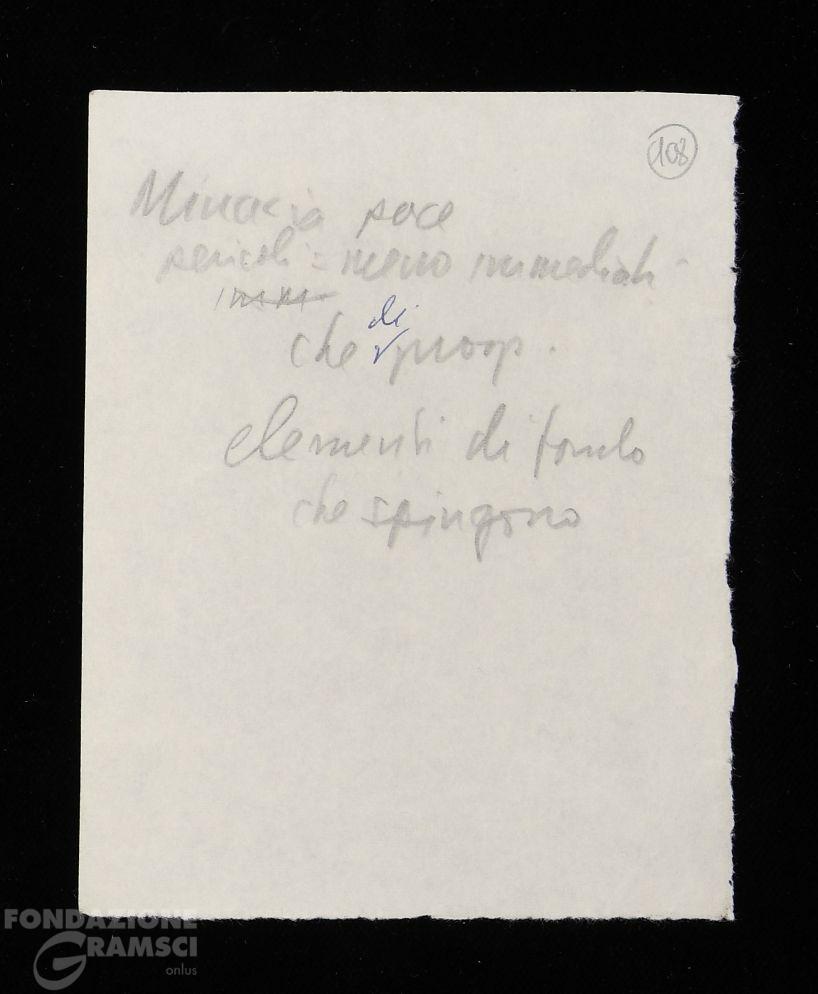 108
Minaccia pace
pericoli = meno immediati -
imm
che di prosp.
elementi di fondo
che spingono
FONDAZIONE
GRAMSCI
onlus